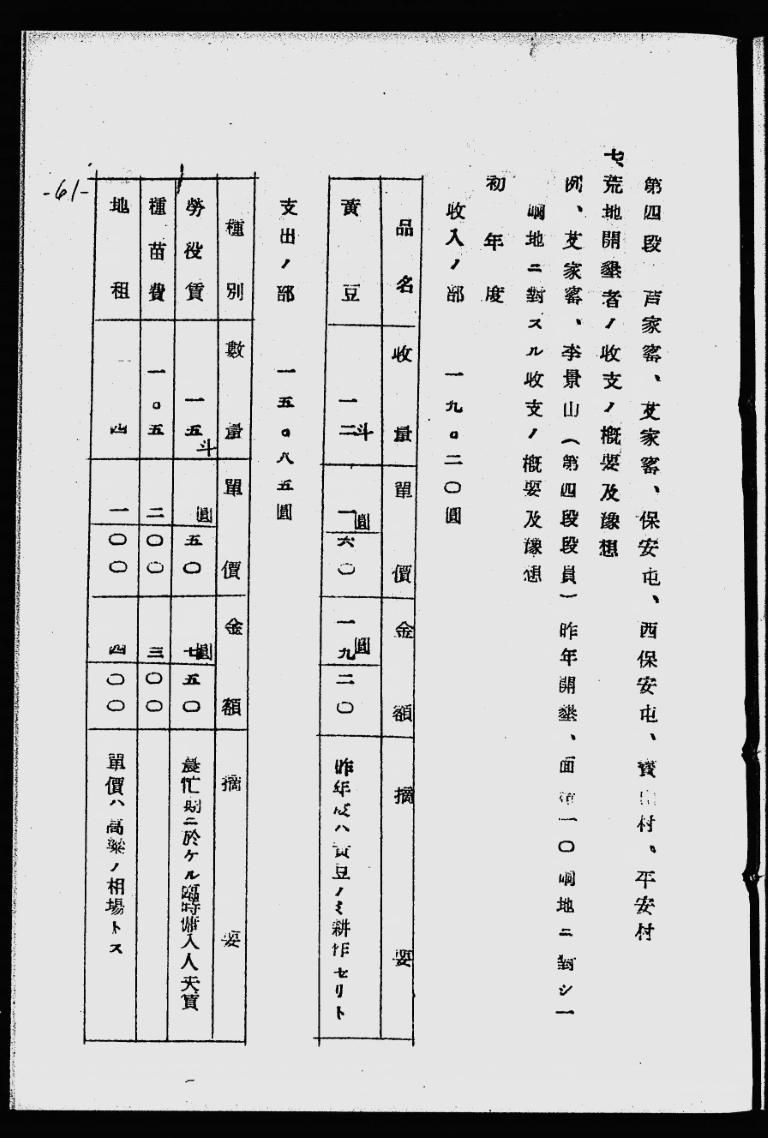 第四段　芦家窩、艾家窩、保安屯、西保安屯、寳　村、平安村
七、荒地開墾者ノ收支ノ概要及豫想
例、艾家窩、李景山（第四段段員）昨年開墾、面積一〇晌地ニ對シ一
晌地ニ對スル收支ノ概要及豫想
初年度
收入ノ部　一九。二〇圓
品名　收量　單價　金額　摘要
黃豆　一二斗　一圓六〇　一九圓二〇　昨年度ハ黃豆ノミ耕作セリト
支出ノ部　一五。八五圓
種別　數量　單價　金額　摘要
勞役賃　一五　圓五〇　七圓五〇　農忙期ニ於ケル臨時傭入人夫賃
種苗費　一。五斗　二〇〇　三〇〇
地租　四　一〇〇　四〇〇　單價ハ高粱ノ相場トス
-61-